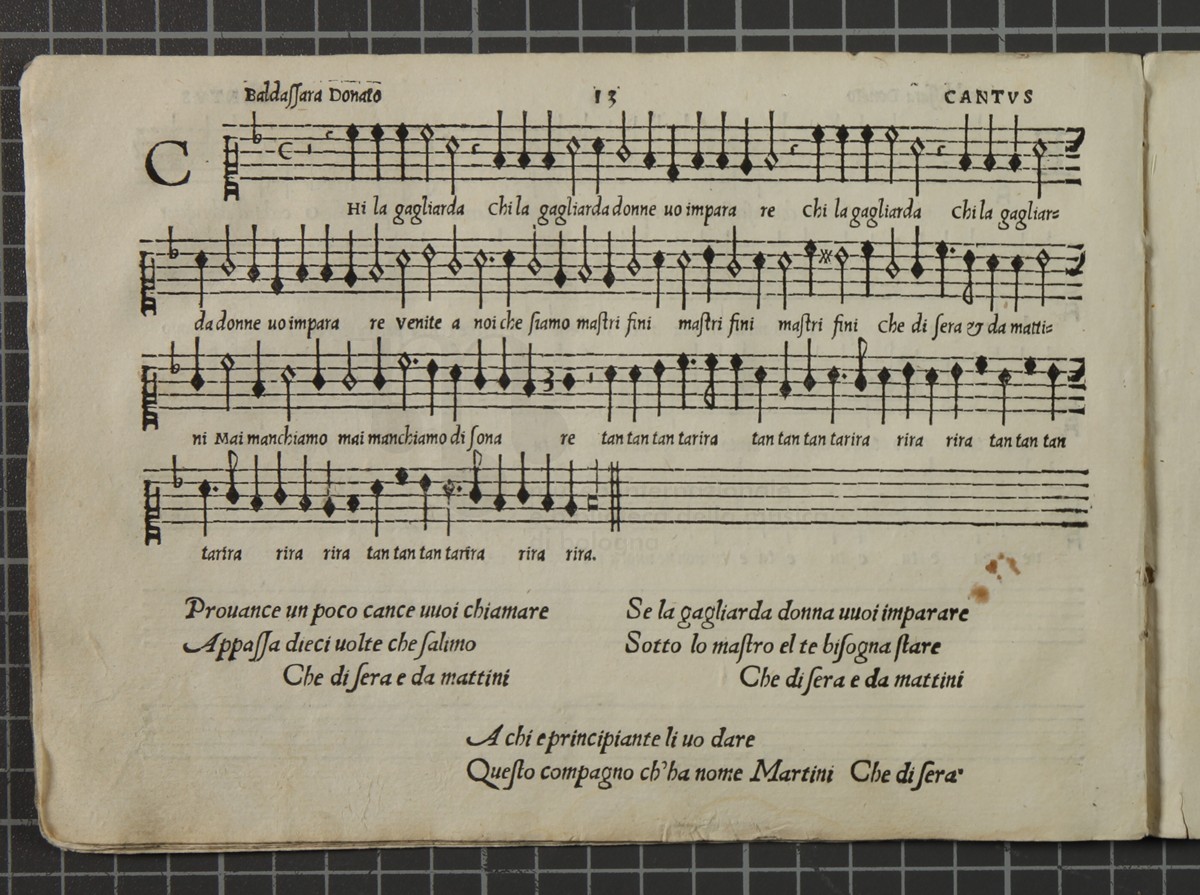 Baldaſſara Donato 13 CANTVS
C
Hi la gagliarda Chi la gagliarda donne uo impara re Chi la gagliarda Chi la gagliar=
da donne uo impara re venite a noi che ſiamo maſtri fini maſtri fini maſtri fini che di ſera & da matti=
ni Mai manchiamo mai manchiamo di ſona re tan tan tan tarira tan tan tan tarira rira rira tan tan tan
tarira rira rira tan tan tan tarira rira rira.
Prouance un poco cance uuoi chiamare
Appaſſa dieci uolte che ſalimo
Che di ſera e da mattini
Se la gagliarda donna uuoi imparare
Sotto lo maſtro el te biſogna ſtare
Che di ſera e da mattini
A chi e principiante li uo dare
Queſto compagno ch'ha nome Martini Che di ſera